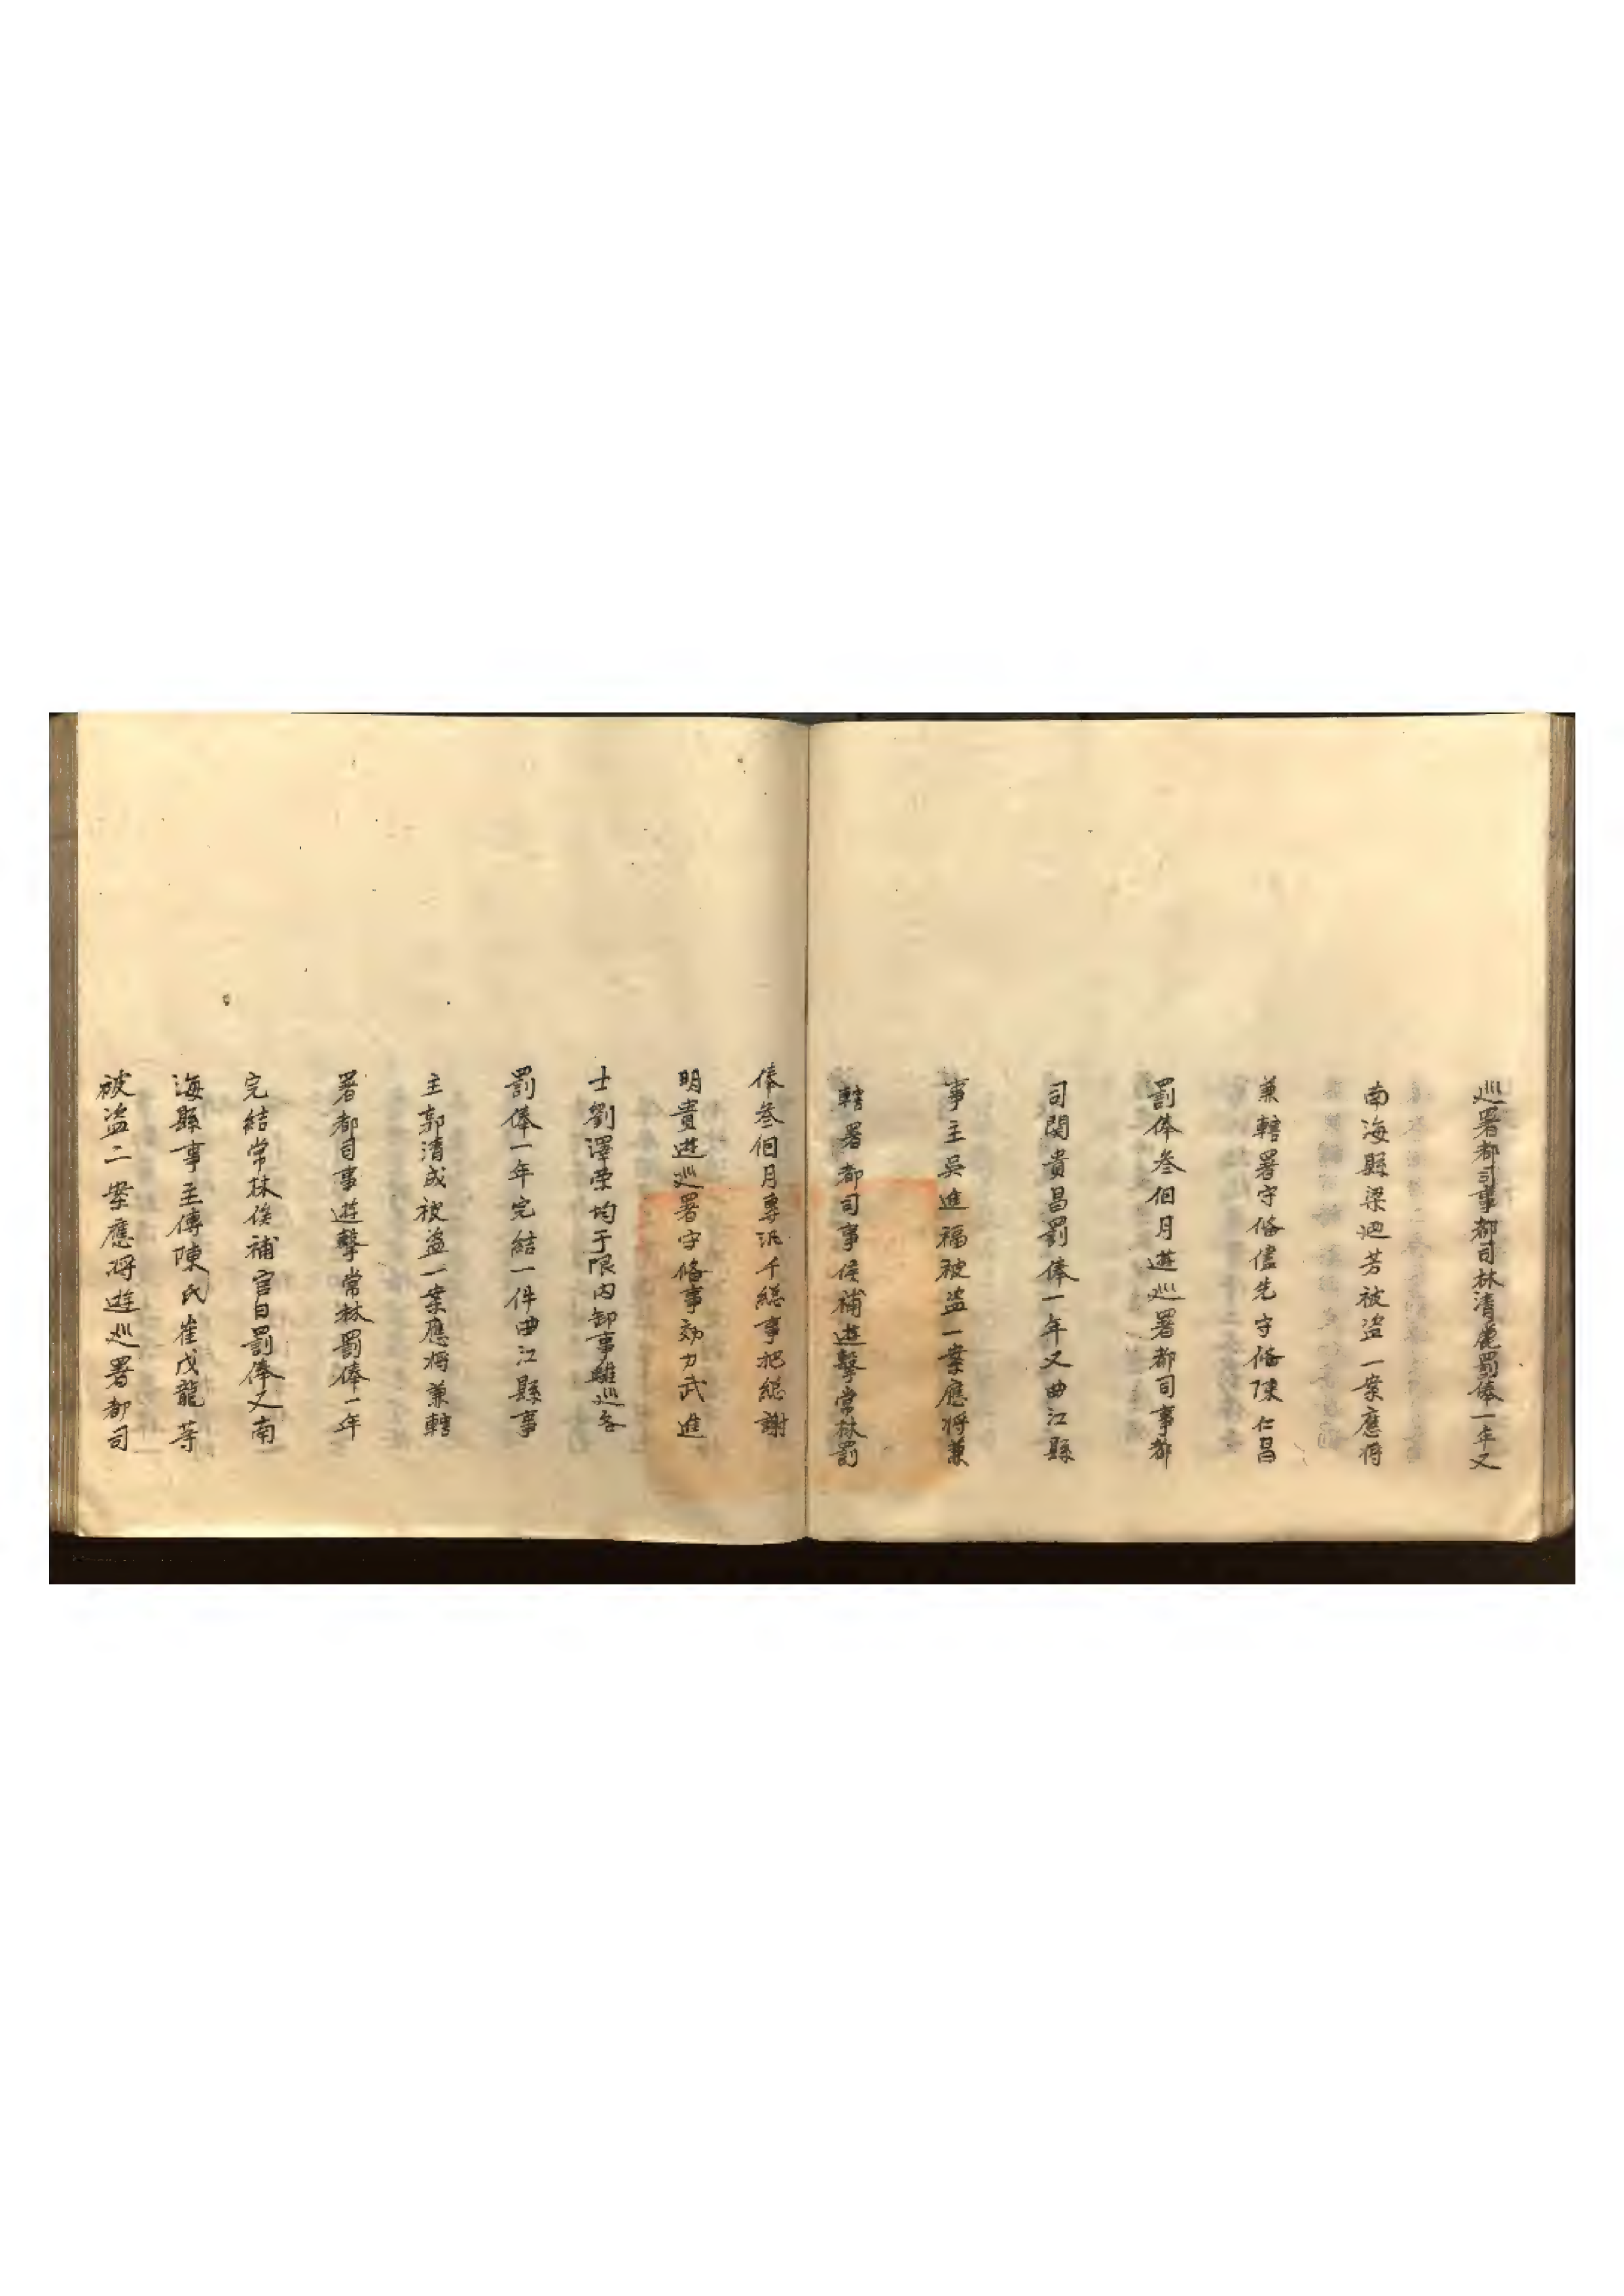 巡署都司事都司林清麂罰俸一年又
南海縣梁迎芳被盜一案應将
兼轄署守俻儘先守俻陳仁昌
罰俸叁個月遊巡署都司事都
司関貴昌罰俸一年又曲江縣
事主吳進福被盜一案應将兼
轄署都司事候補遊擊常林罰
俸叁個月專汛千総事把総謝
明貴遊巡署守俻事効力武進
士劉澤榮均于限内卸事離巡各
罰俸一年完結一件曲江縣事
主郭清成被盜一案應将兼轄
署都司事遊擊常林罰俸一年
完結常林俟補官日罰俸又南
海縣事主傅陳氏崔茂龍等
被盜二案應将遊巡署都司